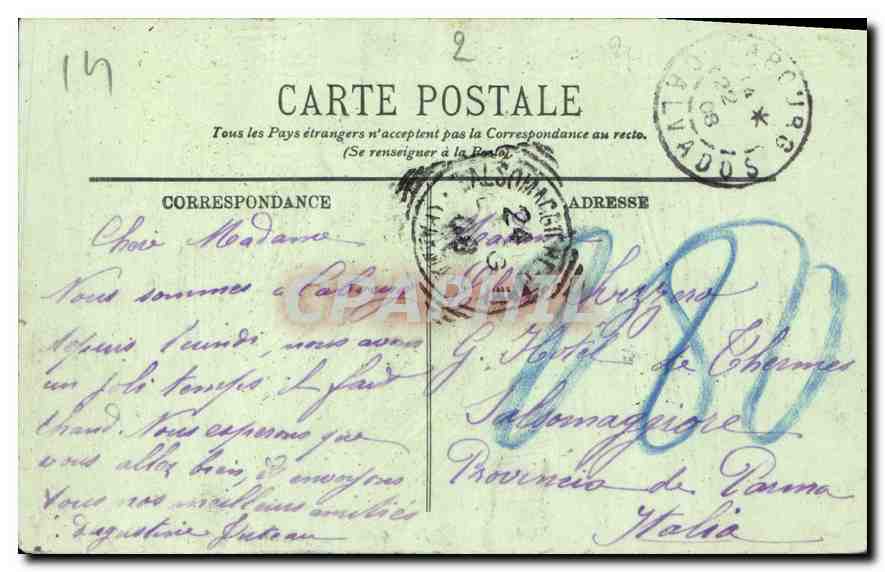 14
2
CARTE POSTALE
Tous les Pays étrangers n'acceptent pas la Correspondance au recto.
(Se renseigner à la Poste).
CABOURG
CALVADOS
22
08
SALSOMAGGIORE
24
08
CORRESPONDANCE
ADRESSE
Chère Madame
Nous sommes à Cabourg
depuis lundi, nous avons
un joli temps il fait
chaud. Nous esperons que
vous allez bien, et envoyons
tous nos meilleurs amitiés
Madame
Svizzera
G. Hotel de Thermes
Salsomaggiore
Provincia de Parma
Italia
080
CPARAMA